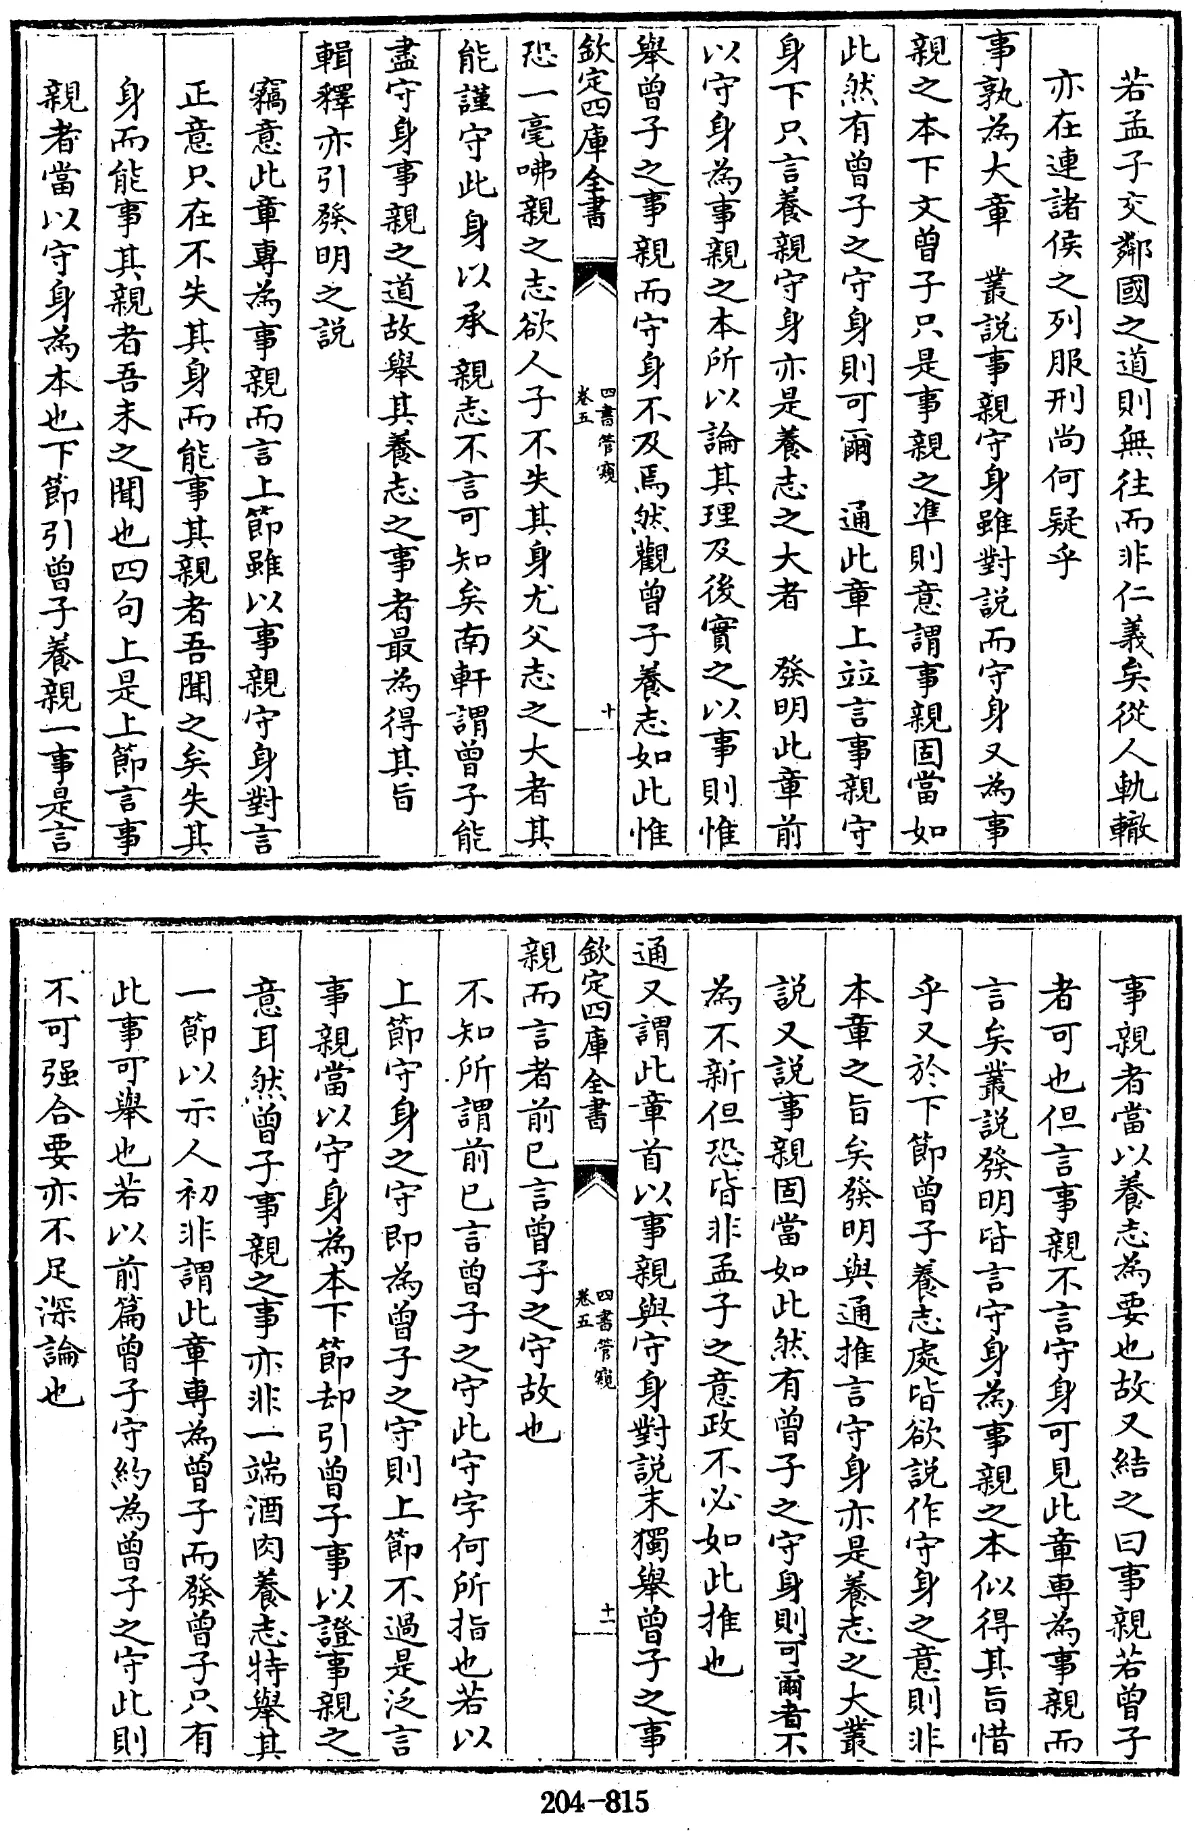 若孟子交鄰國之道則無往而非仁義矣從人軌轍
亦在連諸侯之列服刑尚何疑乎
事孰為大章　叢説事親守身雖對説而守身又為事
親之本下文曾子只是事親之凖則意謂事親固當如
此然有曾子之守身則可爾　通此章上竝言事親守
身下只言養親守身亦是養志之大者　發明此章前
以守身為事親之本所以論其理及後實之以事則惟
舉曾子之事親而守身不及焉然觀曾子養志如此惟
欽定四庫全書
四書管窺
卷五
十
恐一毫咈親之志欲人子不失其身尤父志之大者其
能謹守此身以承親志不言可知矣南軒謂曾子能
盡守身事親之道故舉其養志之事者最為得其旨
輯釋亦引發明之説
竊意此章專為事親而言上節雖以事親守身對言
正意只在不失其身而能事其親者吾聞之矣失其
身而能事其親者吾未之聞也四句上是上節言事
親者當以守身為本也下節引曾子養親一事是言
事親者當以養志為要也故又結之曰事親若曾子
者可也但言事親不言守身可見此章專為事親而
言矣叢説發明皆言守身為事親之本似得其旨惜
乎又於下節曾子養志處皆欲説作守身之意則非
本章之旨矣發明與通推言守身亦是養志之大叢
説又説事親固當如此然有曾子之守身則可爾者不
為不新但恐皆非孟子之意政不必如此推也
通又謂此章首以事親與守身對説末獨舉曾子之事
欽定四庫全書
四書管窺
卷五
十一
親而言者前已言曾子之守故也
不知所謂前已言曾子之守此守字何所指也若以
上節守身之守即為曾子之守則上節不過是泛言
事親當以守身為本下節却引曾子事以證事親之
意耳然曾子事親之事亦非一端酒肉養志特舉其
一節以示人初非謂此章專為曾子而發曾子只有
此事可舉也若以前篇曾子守約為曾子之守此則
不可强合要亦不足深論也
204-815